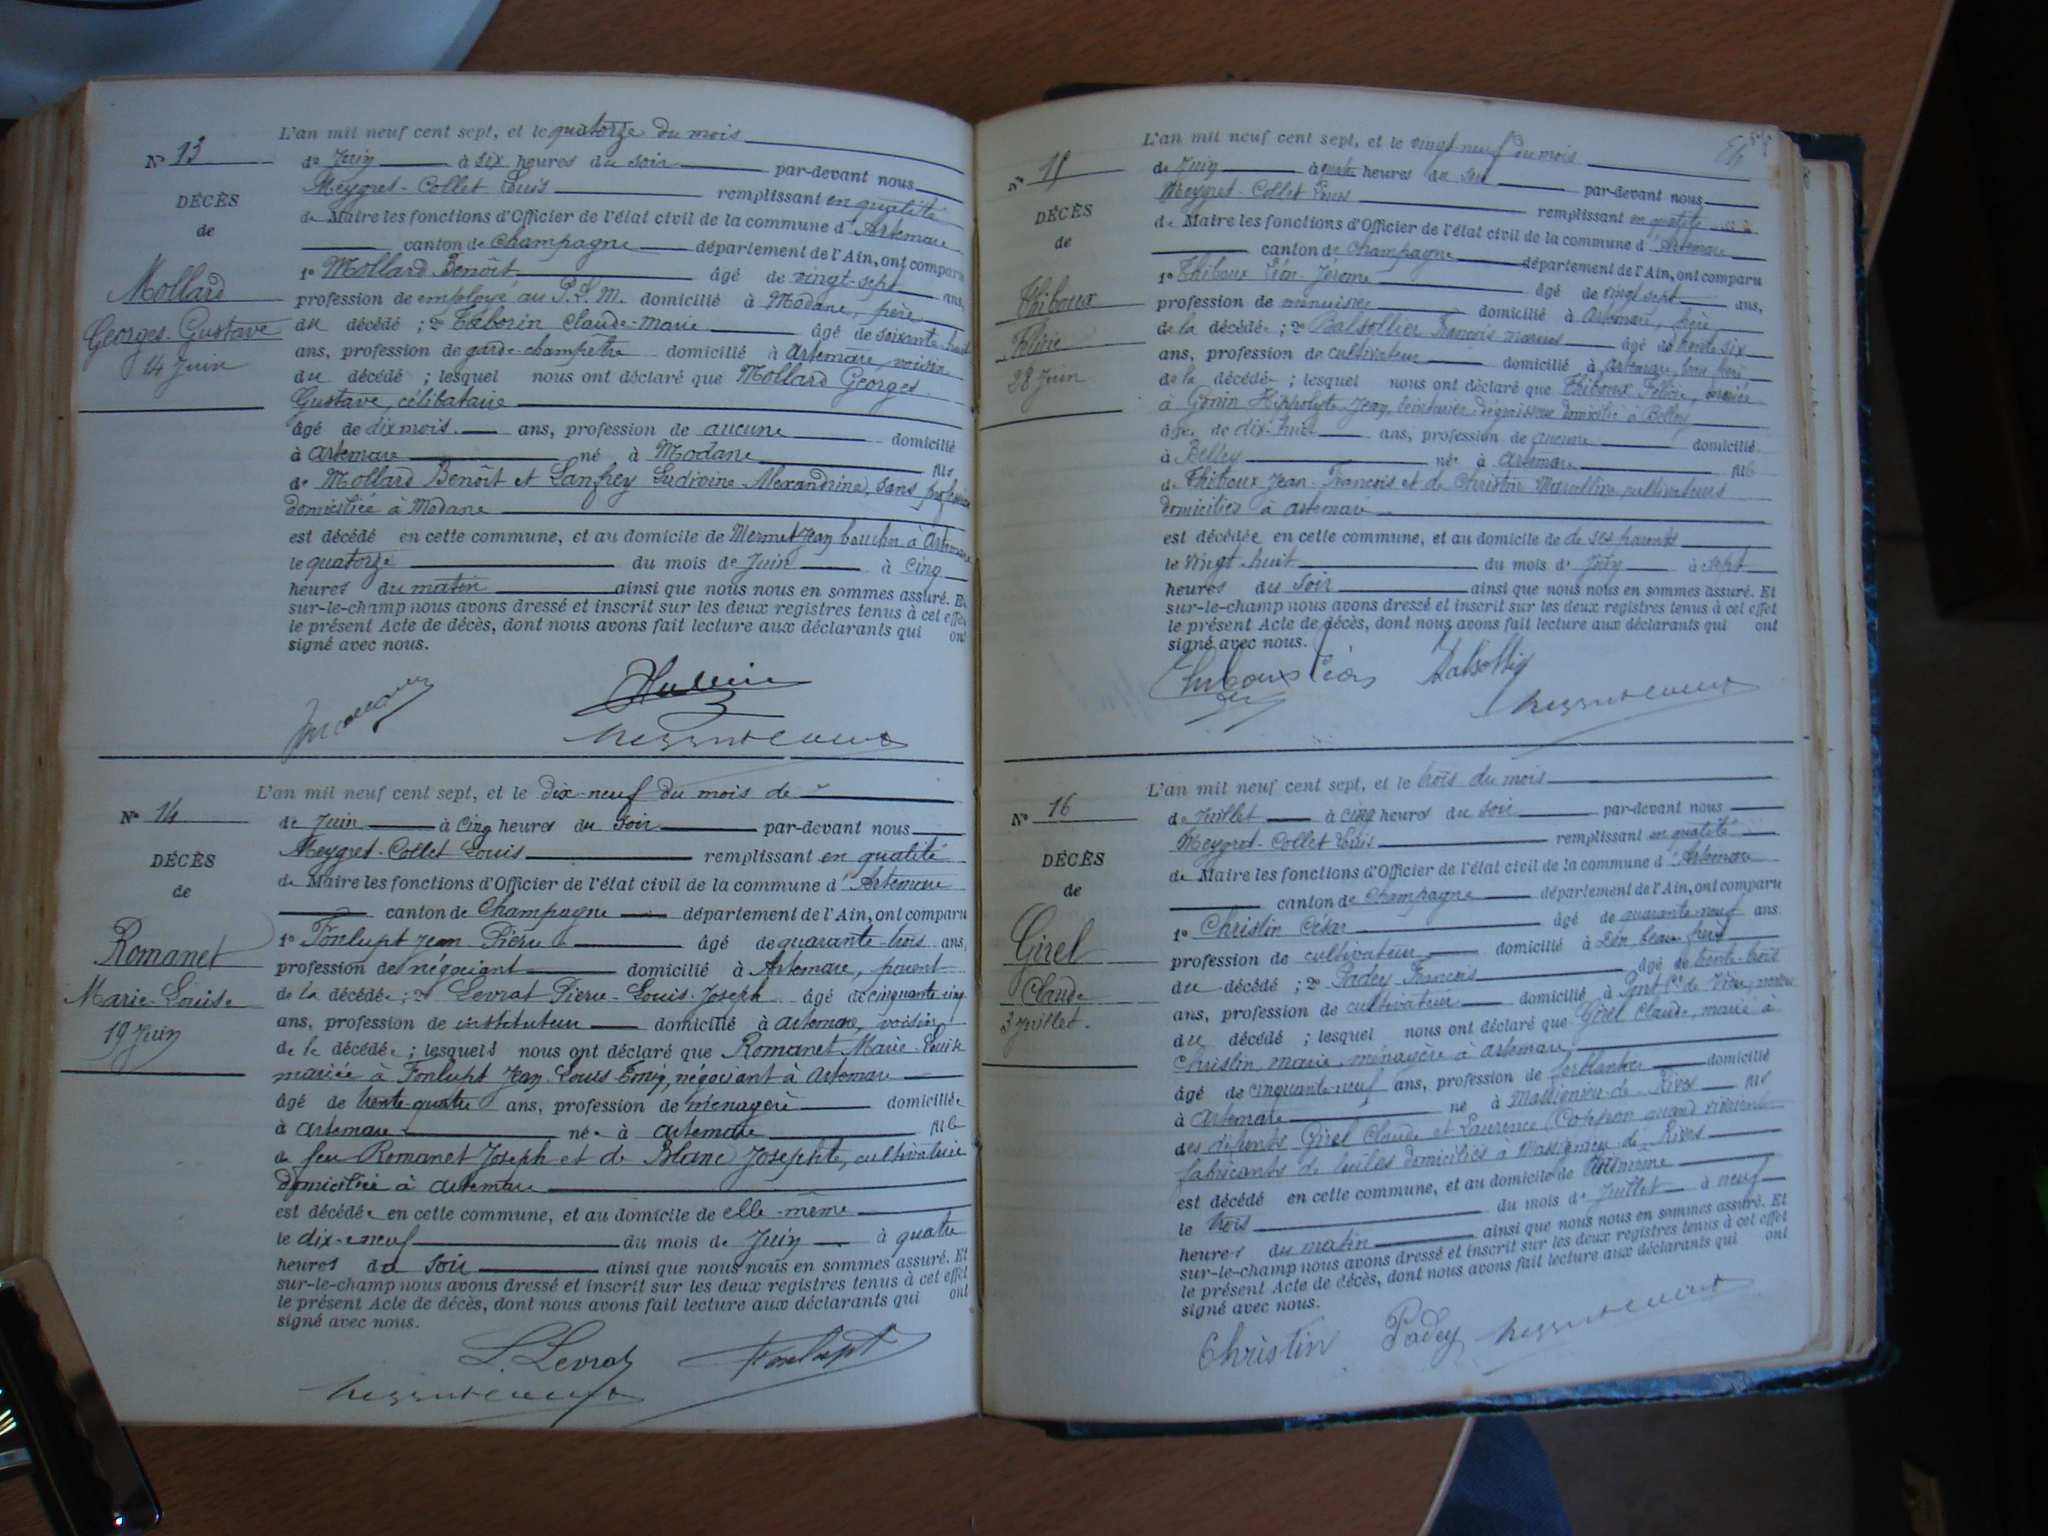 L'an mil neuf cent sept, et le quatorze du mois
N° 13
de Juin à six heures du soir par-devant nous
Meygret-Collet Louis remplissant en qualité
DÉCÈS
de Maire les fonctions d'Officier de l'état civil de la commune d'Artemare
de
canton de Champagne département de l'Ain, ont comparu
1° Mollard Benoît âgé de vingt-sept ans,
Mollard
profession de employé au P.L.M. domicilié à Modane, père
Georges-Gustave
du décédé ; 2° Claude-Marie âgé de soixante-huit
14 Juin
ans, profession de garde-champêtre domicilié à Artemare, voisin
du décédé ; lesquel nous ont déclaré que Mollard Georges
Gustave, célibataire
âgé de dix mois ans, profession de aucune domicilié
à Artemare né à Modane fils
de Mollard Benoît et Lanfrey Ludivine Alexandrine, sans profession
domiciliée à Modane
est décédé en cette commune, et au domicile de Mermet Jean à Artemare
le quatorze du mois de Juin à cinq
heures du matin ainsi que nous nous en sommes assuré. Et
sur-le-champ nous avons dressé et inscrit sur les deux registres tenus à cet effet
le présent Acte de décès, dont nous avons fait lecture aux déclarants qui ont
signé avec nous.
L'an mil neuf cent sept, et le dix-neuf du mois de
N° 14
de Juin à cinq heures du soir par-devant nous
Meygret-Collet Louis remplissant en qualité
DÉCÈS
de Maire les fonctions d'Officier de l'état civil de la commune d'Artemare
de
canton de Champagne département de l'Ain, ont comparu
Romanet
1° Fonlupt Jean Pierre âgé de quarante-trois ans,
profession de négociant domicilié à Artemare, parent
Marie-Louise
de la décédée ; 2° Levrat Pierre-Louis-Joseph âgé de cinquante-cinq
19 Juin
ans, profession de instituteur domicilié à Artemare, voisin
de la décédée ; lesquels nous ont déclaré que Romanet Marie-Louise
mariée à Fonlupt Jean-Louis négociant à Artemare
âgé de trente-quatre ans, profession de ménagère domiciliée
à Artemare née à Artemare fille
de feu Romanet Joseph et de Blanc Josephte, cultivatrice
domiciliée à Artemare
est décédée en cette commune, et au domicile de elle-même
le dix-neuf du mois de Juin à quatre
heures du soir ainsi que nous nous en sommes assuré. Et
sur-le-champ nous avons dressé et inscrit sur les deux registres tenus à cet effet
le présent Acte de décès, dont nous avons fait lecture aux déclarants qui ont
signé avec nous.
L. Levrat Fonlupt
L'an mil neuf cent sept, et le vingt-neuf du mois
N° 15
de Juin à quatre heures du soir par-devant nous
Meygret-Collet Louis remplissant en qualité
DÉCÈS
de Maire les fonctions d'Officier de l'état civil de la commune d'Artemare
de
canton de Champagne département de l'Ain, ont comparu
1° Thiboux Léon-Jérome âgé de vingt-sept ans,
Thiboux
profession de menuisier domicilié à Artemare, frère
Félicie
de la décédée ; 2° Balsollier François âgé de trente-six
28 Juin
ans, profession de cultivateur domicilié à Artemare, beau-frère
de la décédée ; lesquel nous ont déclaré que Thiboux Félicie, mariée
à Gonin Hippolyte Jean, domicilié à Belley
âgée de dix-huit ans, profession de aucune domicilié
à Belley née à Artemare fille
de Thiboux Jean-François et de Christin Marcelline, cultivateurs
domiciliés à Artemare
est décédée en cette commune, et au domicile de de ses parents
le vingt-huit du mois d à sept
heures du soir ainsi que nous nous en sommes assuré. Et
sur-le-champ nous avons dressé et inscrit sur les deux registres tenus à cet effet
le présent Acte de décès, dont nous avons fait lecture aux déclarants qui ont
signé avec nous.
Thiboux Léon
L'an mil neuf cent sept, et le trois du mois
N° 16
de Juillet à cinq heures du soir par-devant nous
Meygret-Collet Louis remplissant en qualité
DÉCÈS
de Maire les fonctions d'Officier de l'état civil de la commune d'Artemare
de
canton de Champagne département de l'Ain, ont comparu
Girel
1° Christin César âgé de quarante-neuf ans
profession de cultivateur domicilié à Don beau-frère
Claude
du décédé ; 2° Padey François âgé de trente-trois
3 Juillet.
ans, profession de cultivateur domicilié à Pont Cne de Vieu, neveu
du décédé ; lesquel nous ont déclaré que Girel Claude, marié à
Christin Marie ménagère à Artemare
âgé de cinquante-neuf ans, profession de ferblantier domicilié
à Artemare né à Massignieu-de-Rives fils
des défunts Girel Claude et Laurence quand vivaient
fabricants de tuiles domiciliés à Massignieu-de-Rives
est décédé en cette commune, et au domicile de
le trois du mois de Juillet à neuf
heures du matin ainsi que nous nous en sommes assuré. Et
sur-le-champ nous avons dressé et inscrit sur les deux registres tenus à cet effet
le présent Acte de décès, dont nous avons fait lecture aux déclarants qui ont
signé avec nous.
Christin Padey